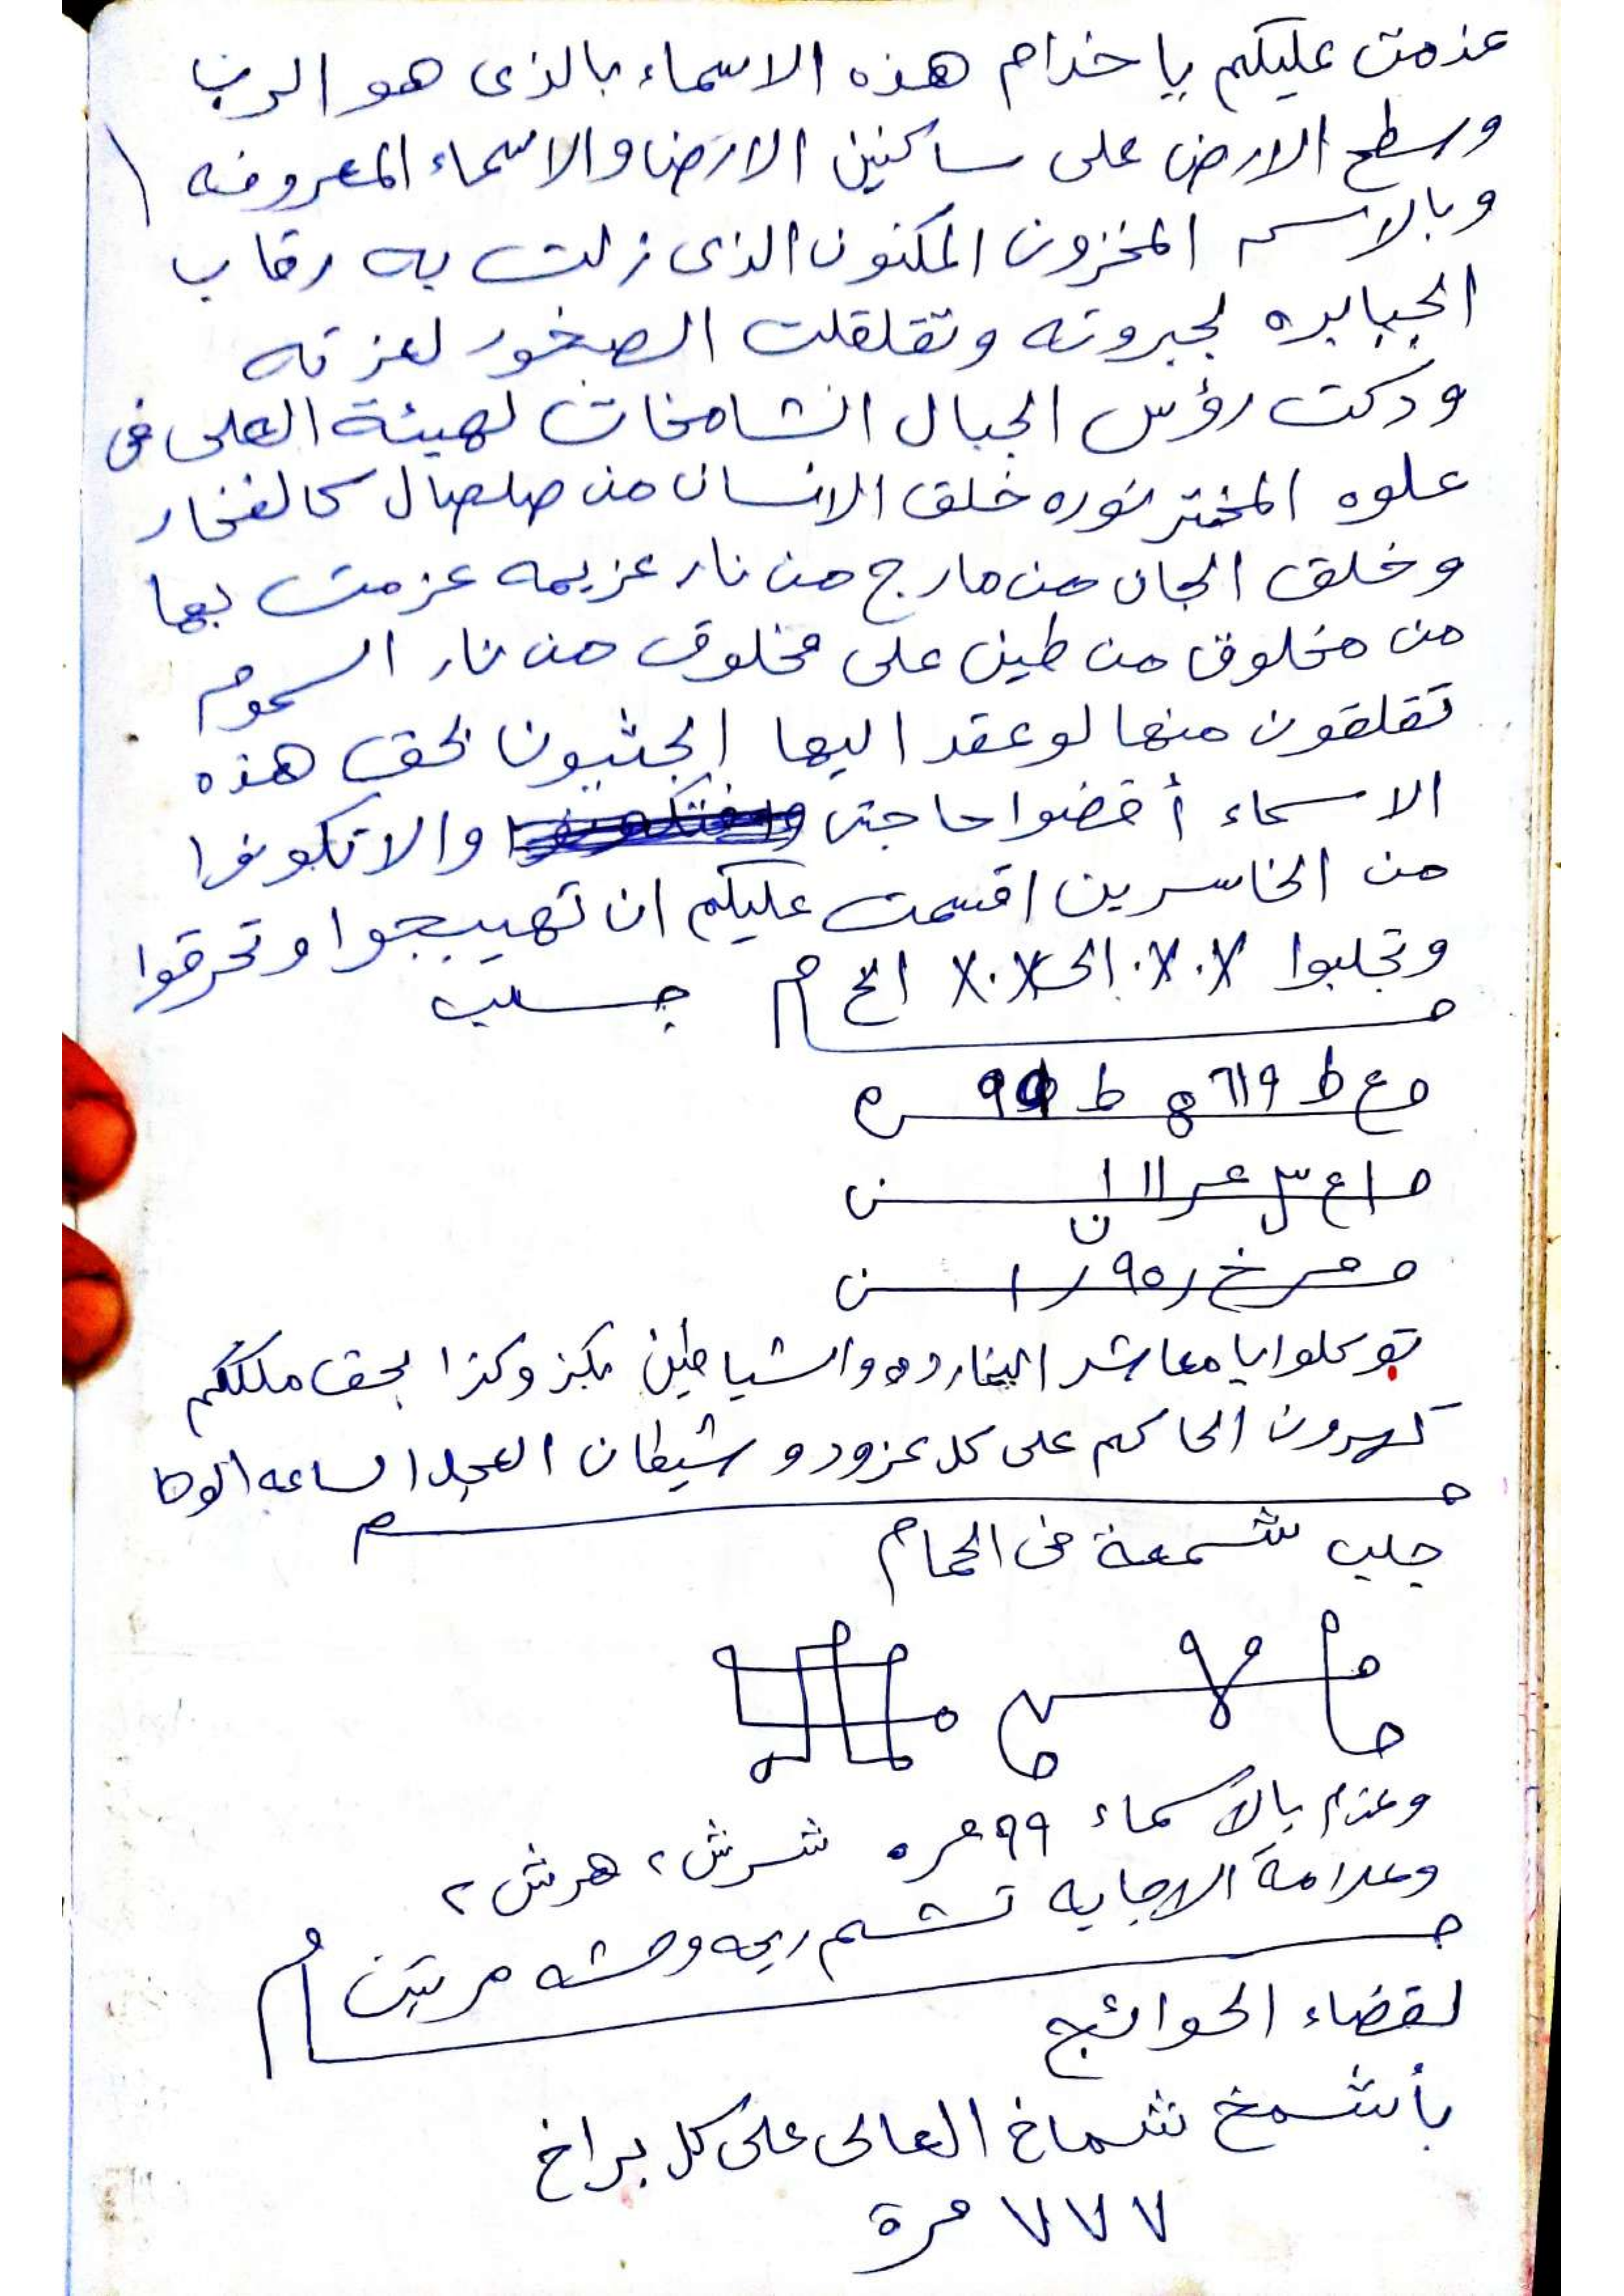 عزمت عليكم يا خدام هذه الاسماء بالذى هو الرب
وسطح الارض على ساكنين الارض والاسماء المعروفه
وبالاسم المخزون المكنون الذى زلت به رقاب
الجبابره لجبروته وتقلقلت الصخور لعزته
ودكت رؤس الجبال الشامخات لهيئة العلى فى
علوه نوره خلق الانسان من صلصال كالفخار
وخلق الجان من مارج من نار عزيمه عزمت بها
من مخلوق من طين على مخلوق من نار السموم
تقلقون منها لو عقد اليها بحق هذه
الاسماء أقضوا حاجتى والا تكونوا
من الخاسرين اقسمت عليكم ان تهيجوا وتحرقوا
وتجلبوا الى الخ جلب
توكلوا يا معاشر والشياطين بكز وكذا بحق ملككم
الحاكم على كل وشيطان العجل الساعه الوحا
جلب شمعة فى الحمام
وعزم بالاسماء ٩٩ مره شرش ٢ هرش ٢
وعلامة الاجابه تشم ريحه وحشه مرتين
لقضاء الحوائج
بأشمخ شماخ العالى على كل براخ
٧٧٧ مرة